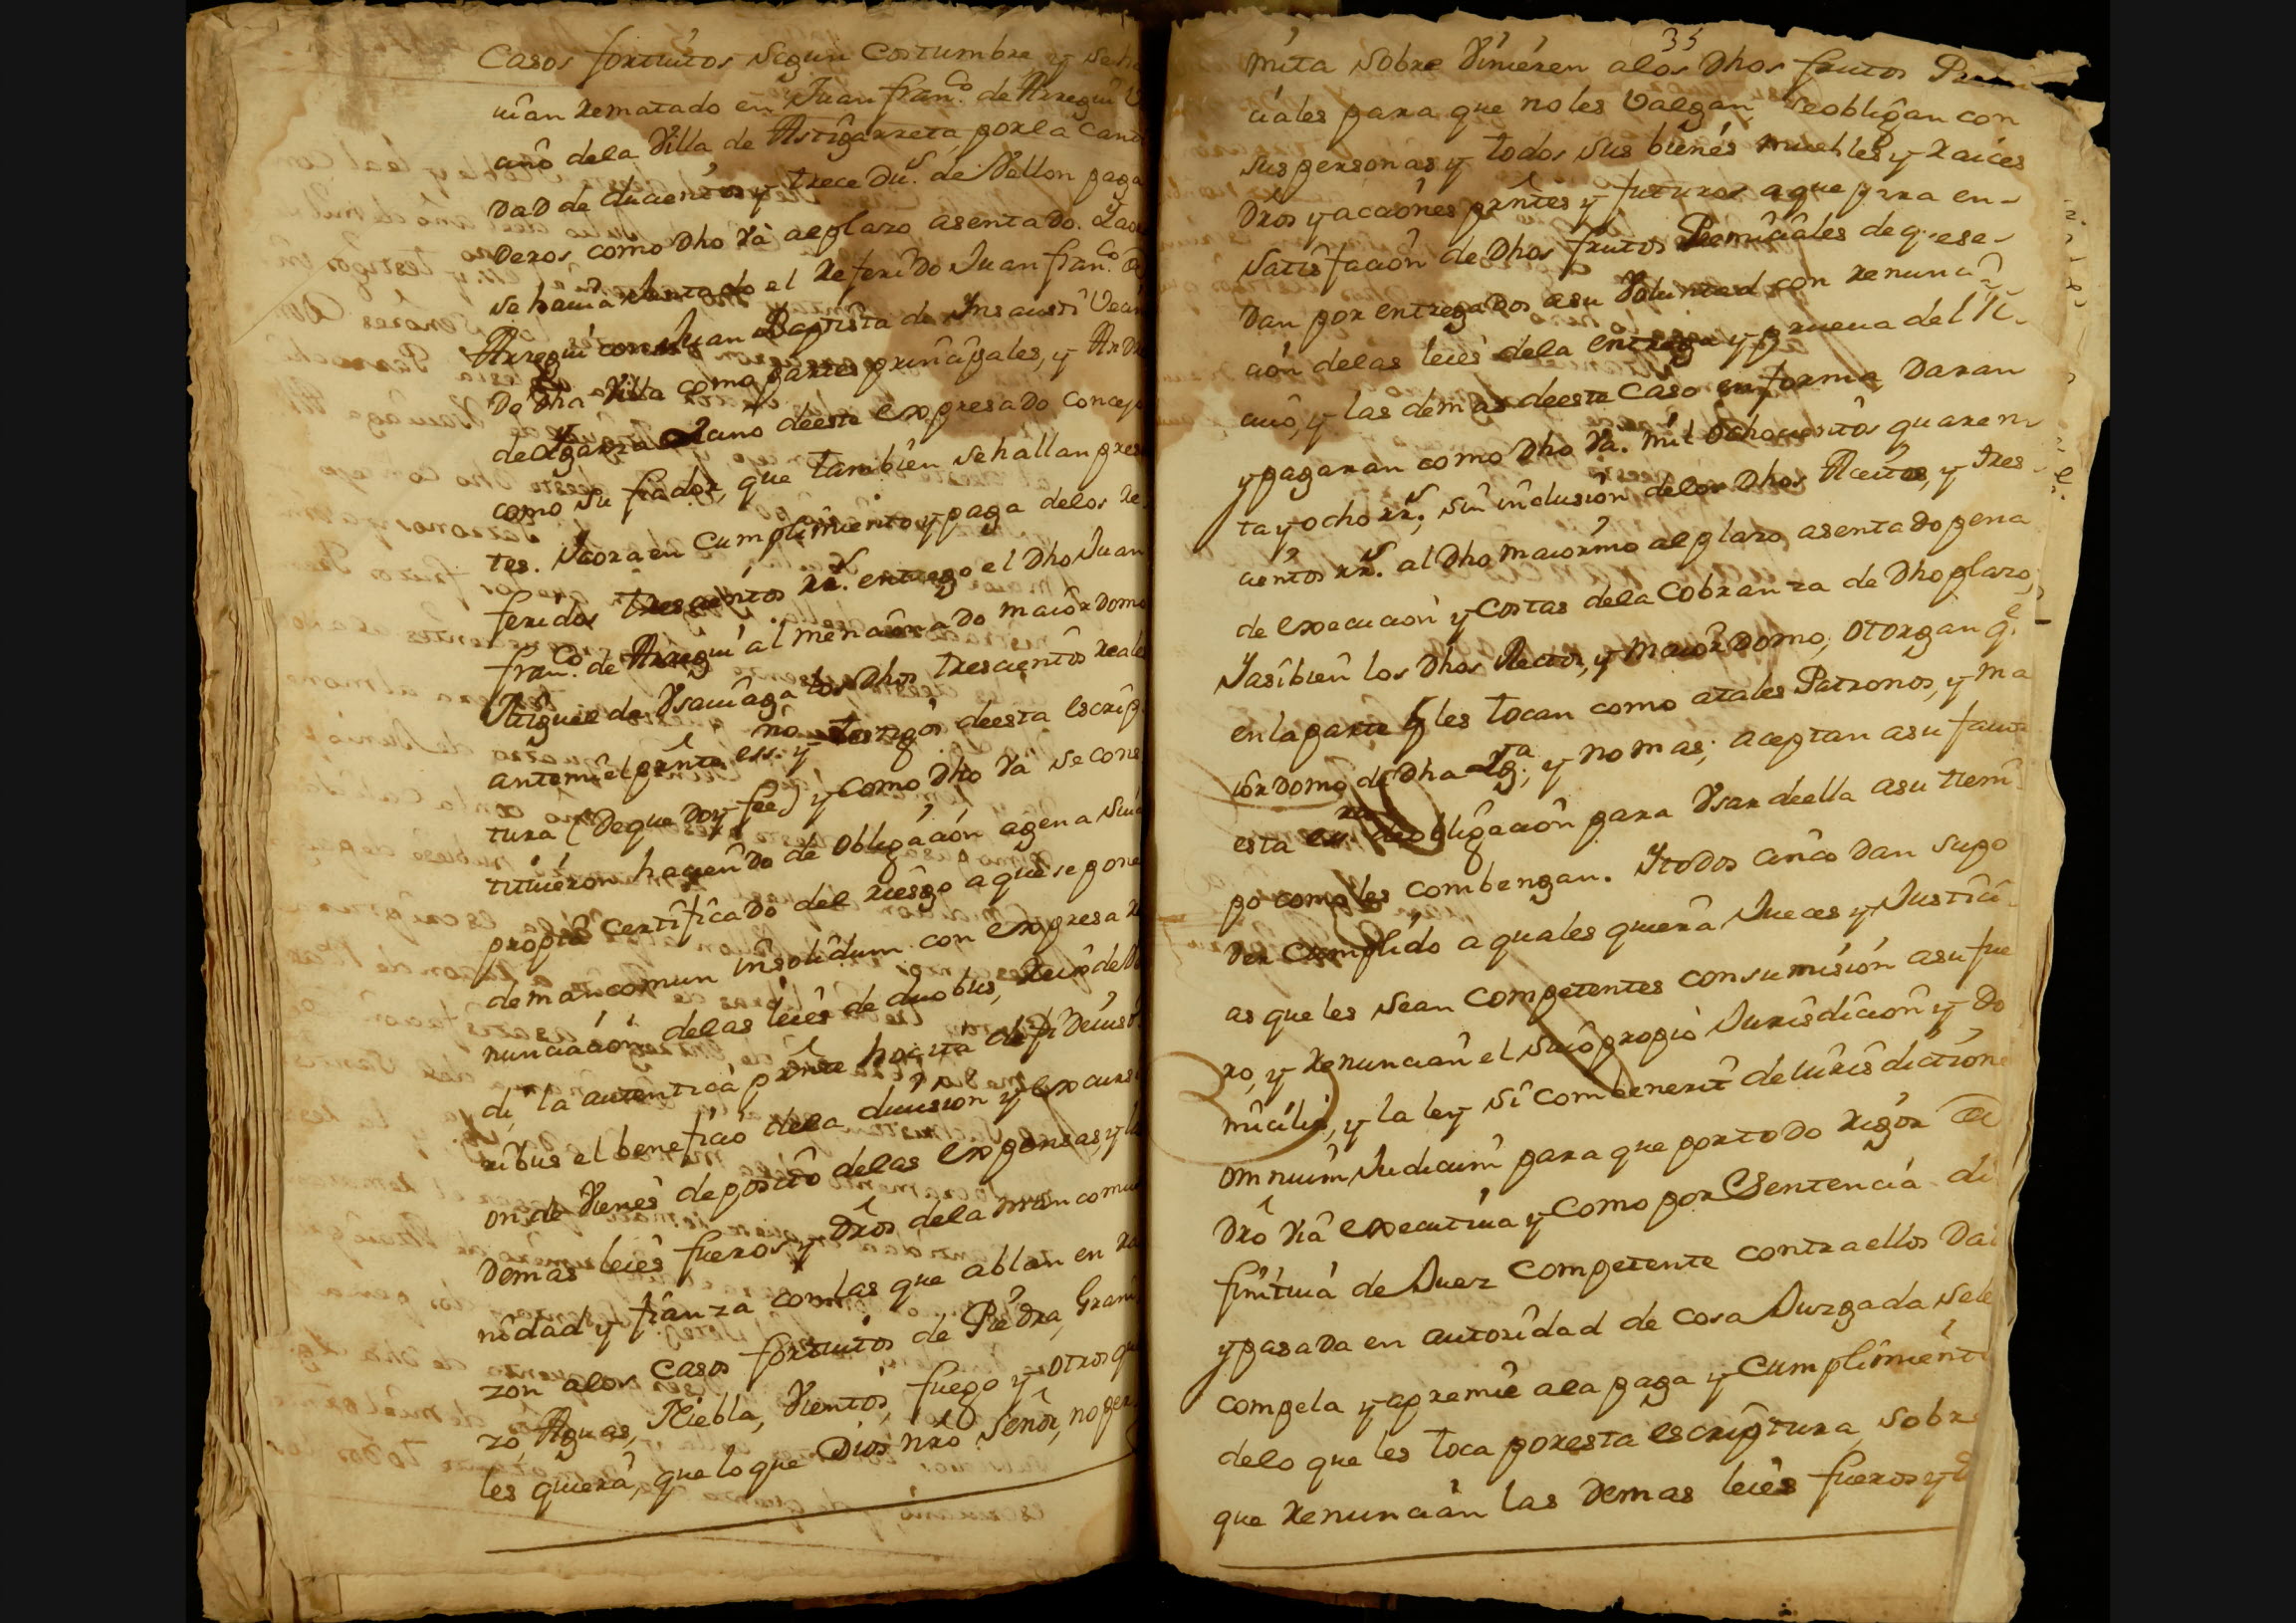 Casos fortuitos segun Costumbre y se ha
uian rematado en Juan fran.co de Arregui V
cino dela Villa de Astigarreta, por la Canti
dad de ducientos y trece du.s de Vellon paga
deros como dho vâ al plazo asentado. Y aor
se hauia el referido Juan fran.co de
Arregui con Juan Baptista de Ynsausti Vecin
de dha Villa como partes principales, y Andr
de deeste expresado Concejo
como su fiador, que tambien se hallan pres
tes. Y aora en Cumplimiento y paga delos re
feridos trescientos rr.s entrego el dho Juan
fran.co de Arregui al mencionado maiordomo
Miguel de Ysauiaga los dhos trescientos reale
antemi el prnte ess.no y testigos deesta escrip
tura (de que doy fee) y como dho vâ se cons
tituieron haciendo de obligación agena suia
propia certificado del riesgo a que se pone
de mancomun insolidum con expresa re
nunciación delas leies de duobus, Reis de
di, la autentica prnte hocita de fideiuso
ribus el beneficio dela diuision y excursi
on de Vienes deposito delas expensas, y la
demas leies fueros y dros dela mancomu
nidad y fianza con las que ablan en ra
zon alos Casos fortuitos de Piedra, Grani
zo, Aguas, Niebla, Vientos, fuego y otros qua
les quiera, que lo que Dios nrô Señor, no per
35
mita sobre Vinieren alos dhos frutos Primi
ciales para que no les Valgan, se obligan con
sus personas y todos sus bienes muebles y raices
dros y acciones prntes y futuros a que para en
satisfación de dhos frutos Premiciales de q. se
dan por entregados asu Voluntad con renuncia
ción delas leies dela entrega y prueua del R
ciuo, y las demas deeste Caso en forma, daran
y pagaran como dho Vâ. mil ochocientos quaren
ta y ocho rr.s, sin inclusión delos dhos y tres
cientos rr.s al dho maiormo al plazo asentado pena
de execución y Costas dela Cobranza de dho plazo;
Y asibien los dhos Rector, y maiordomo, otorgan q.e
en la parte q les tocan como atales Patronos, y ma
iordomo de dha Ygª; y no mas; aceptan asu fauor
esta de obligación para Vsar deella asu tiem
po como les combengan. Y todos cinco dan su po
der Cumplido a quales quiera Jueces y Justici
as que les sean Competentes con sumisión asu fue
ro, y renuncian el suio propio Jurisdición y do
micilio, y la ley si Combenerit de Iurisdictione
omnium Judicum para que por todo rigor de
drô viâ executiua y Como por Sentencia di
finitiua de Juez Competente contra ellos Dad
y pasada en autoridad de cosa Juzgada se le
compela y apremie ala paga y Cumplimient
delo que les toca por esta escriptura, sobre
que renuncian las demas leies fueros y d